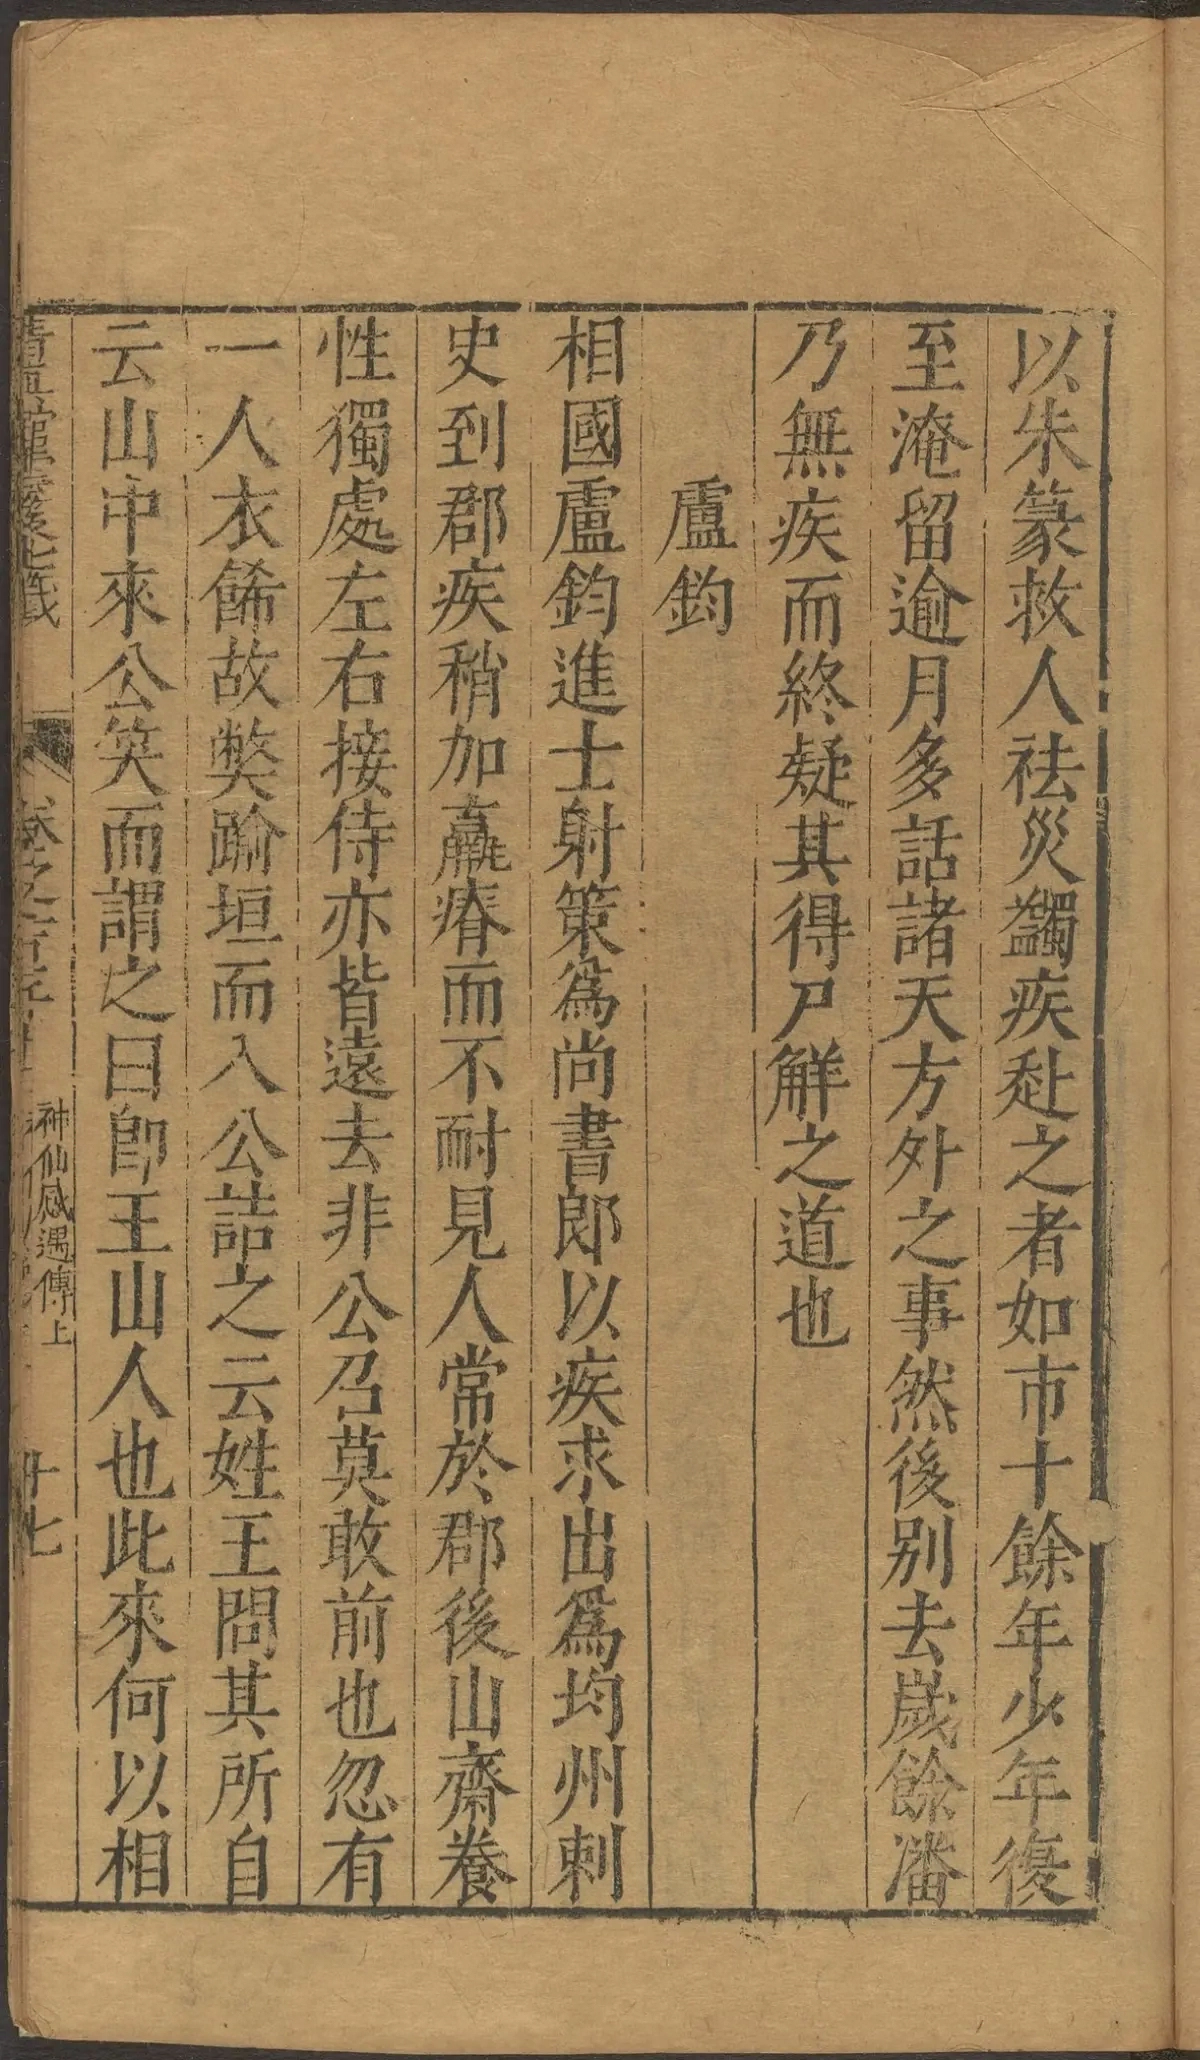 以朱篆救人祛災蠲疾赴之者如市十餘年少年復
至淹留逾月多話諸天方外之事然後別去歲餘潘
乃無疾而終疑其得尸解之道也
盧鈞
相國盧鈞進士射策爲尚書郎以疾求出爲均州刺
史到郡疾稍加羸瘠而不耐見人常於郡後山齋養
性獨處左右接侍亦皆遠去非公召莫敢前也忽有
一人衣飾故弊踰垣而入公詰之云姓王問其所自
云山中來公笑而謂之曰卽王山人也此來何以相
清眞館雲笈七籤
卷之百
神仙感遇傳上
廿七